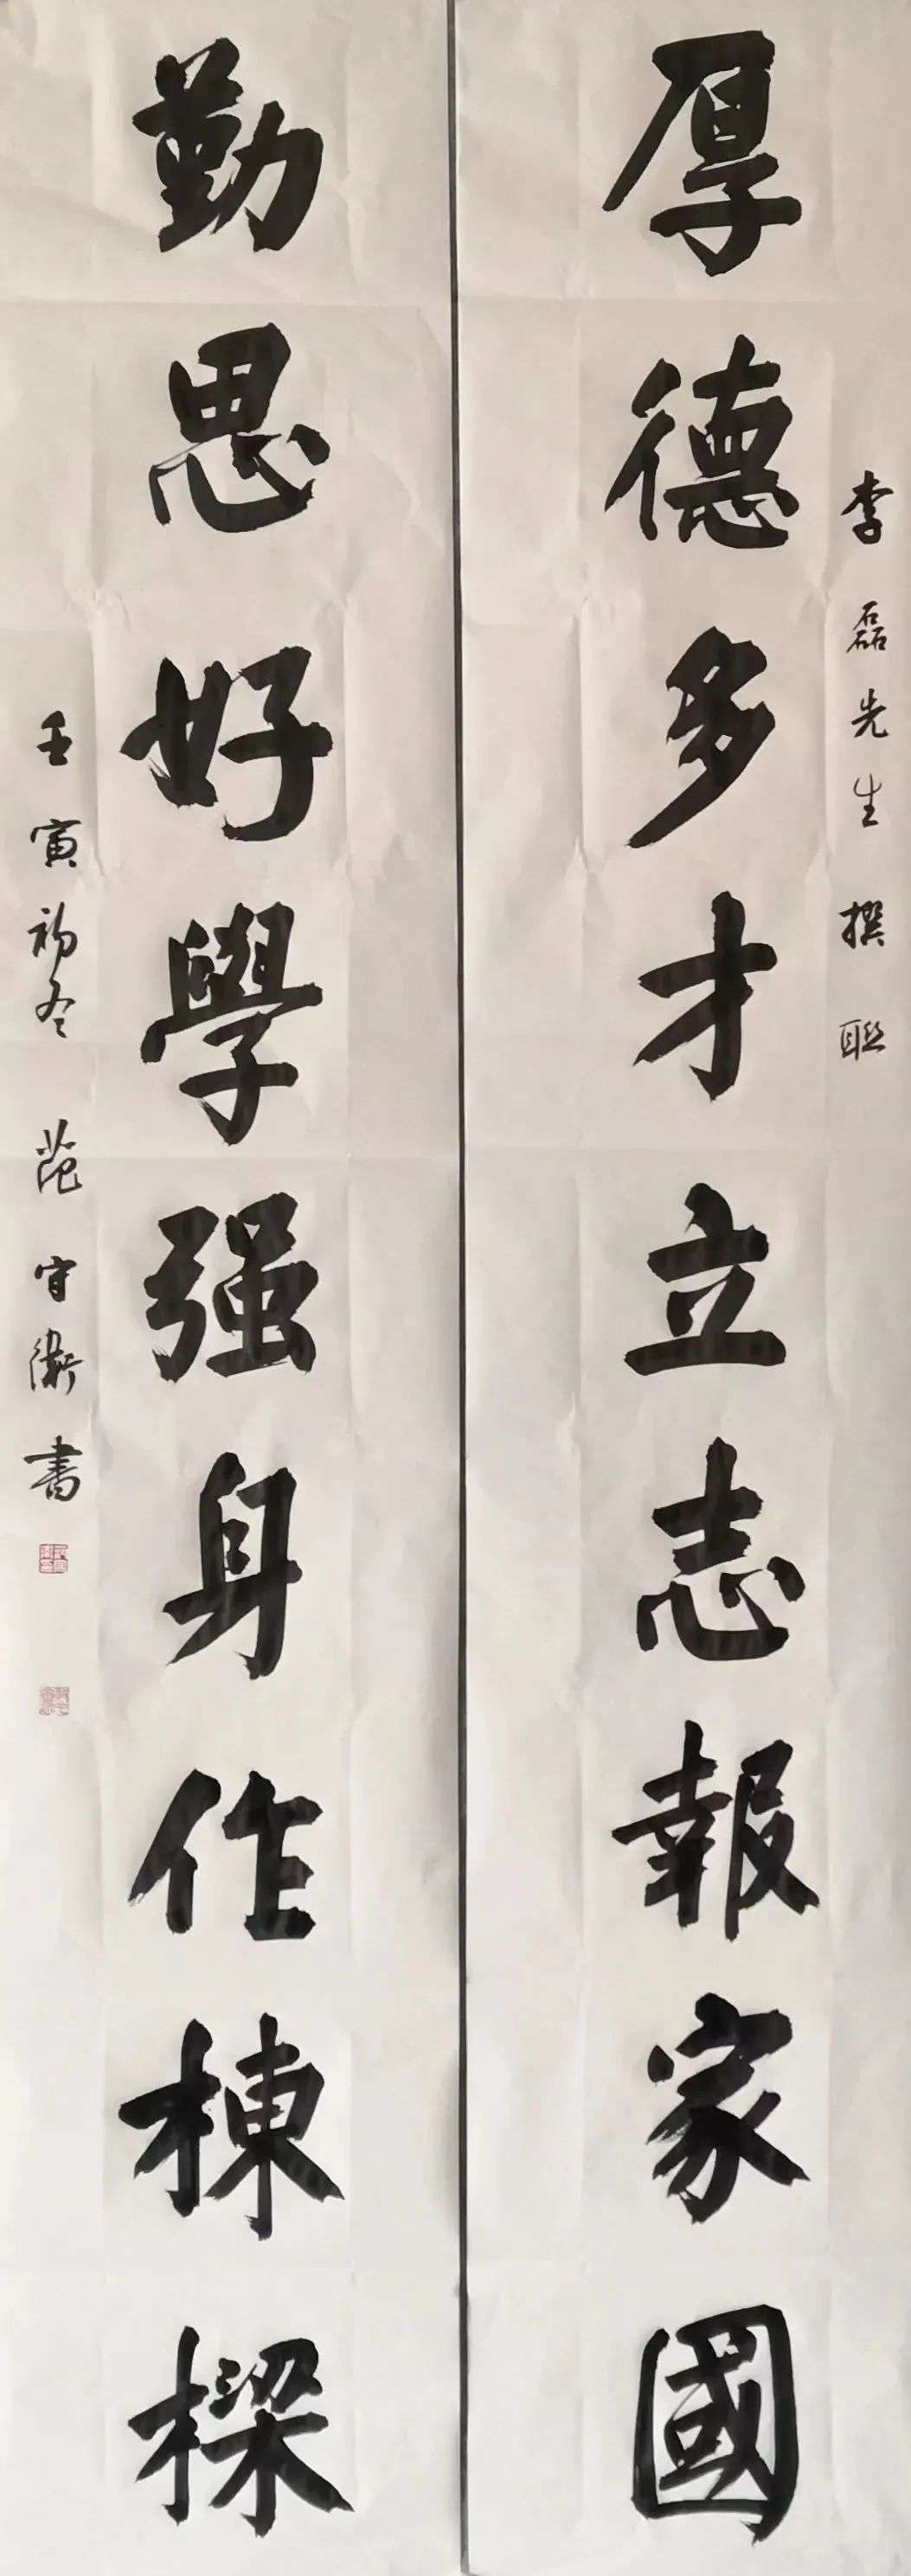 李磊先生撰联
厚德多才立志報家國
勤思好學强身作棟樑
壬寅初冬 范守衛書